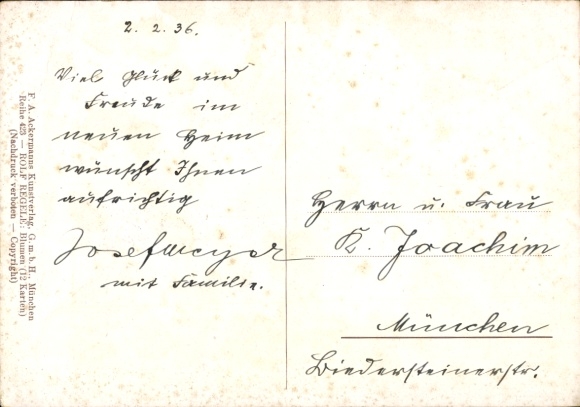 2. 2. 36.
Viel Glück und
Freude im
neuen Heim
wünscht Ihnen
aufrichtig
Josef Meyer
mit Familie.
Herrn u. Frau
K. Joachim
München
Biedersteinerstr.
F. A. Ackermanns Kunstverlag, G. m. b. H., München
Reihe 423 — ROLF REGELE: Blumen (12 Karten)
(Nachdruck verboten — Copyright)